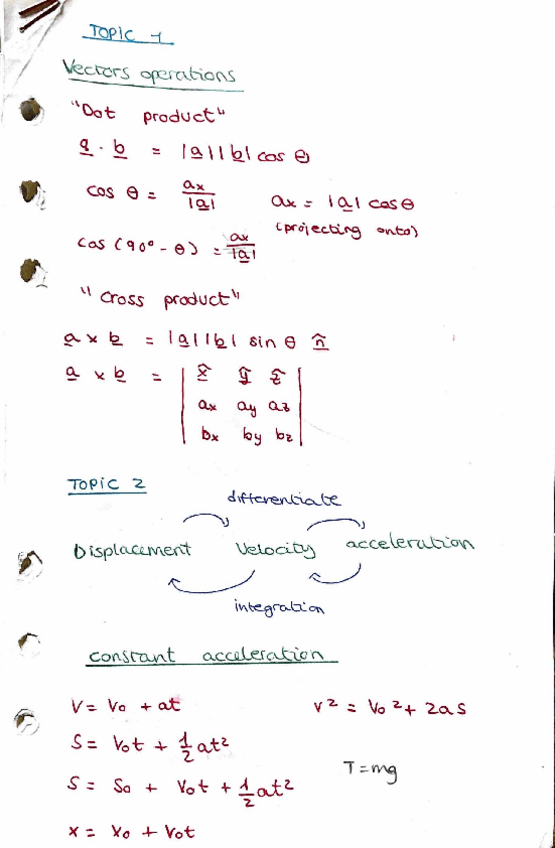 TOPIC 1
Vectors operations
"Dot product"
a · b = |a||b| cos θ
cos θ = ax/|a|    ax = |a| cos θ
(projecting onto)
cos (90° - θ) = ax/|a|
"Cross product"
a x b = |a||b| sin θ n̂
a x b = | x̂ ŷ ẑ |
| ax ay az |
| bx by bz |
TOPIC 2
differentiate
Displacement Velocity acceleration
integration
constant acceleration
V = V₀ + at    v² = V₀² + 2as
S = V₀t + ½at²
T = mg
S = S₀ + V₀t + ½at²
x = x₀ + V₀t